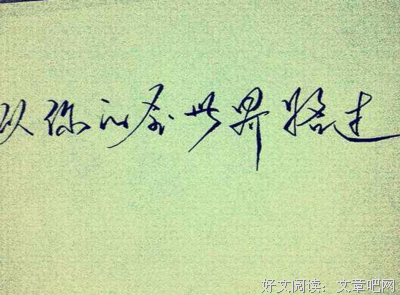 从你的全世界路过
好文阅读：文章吧网